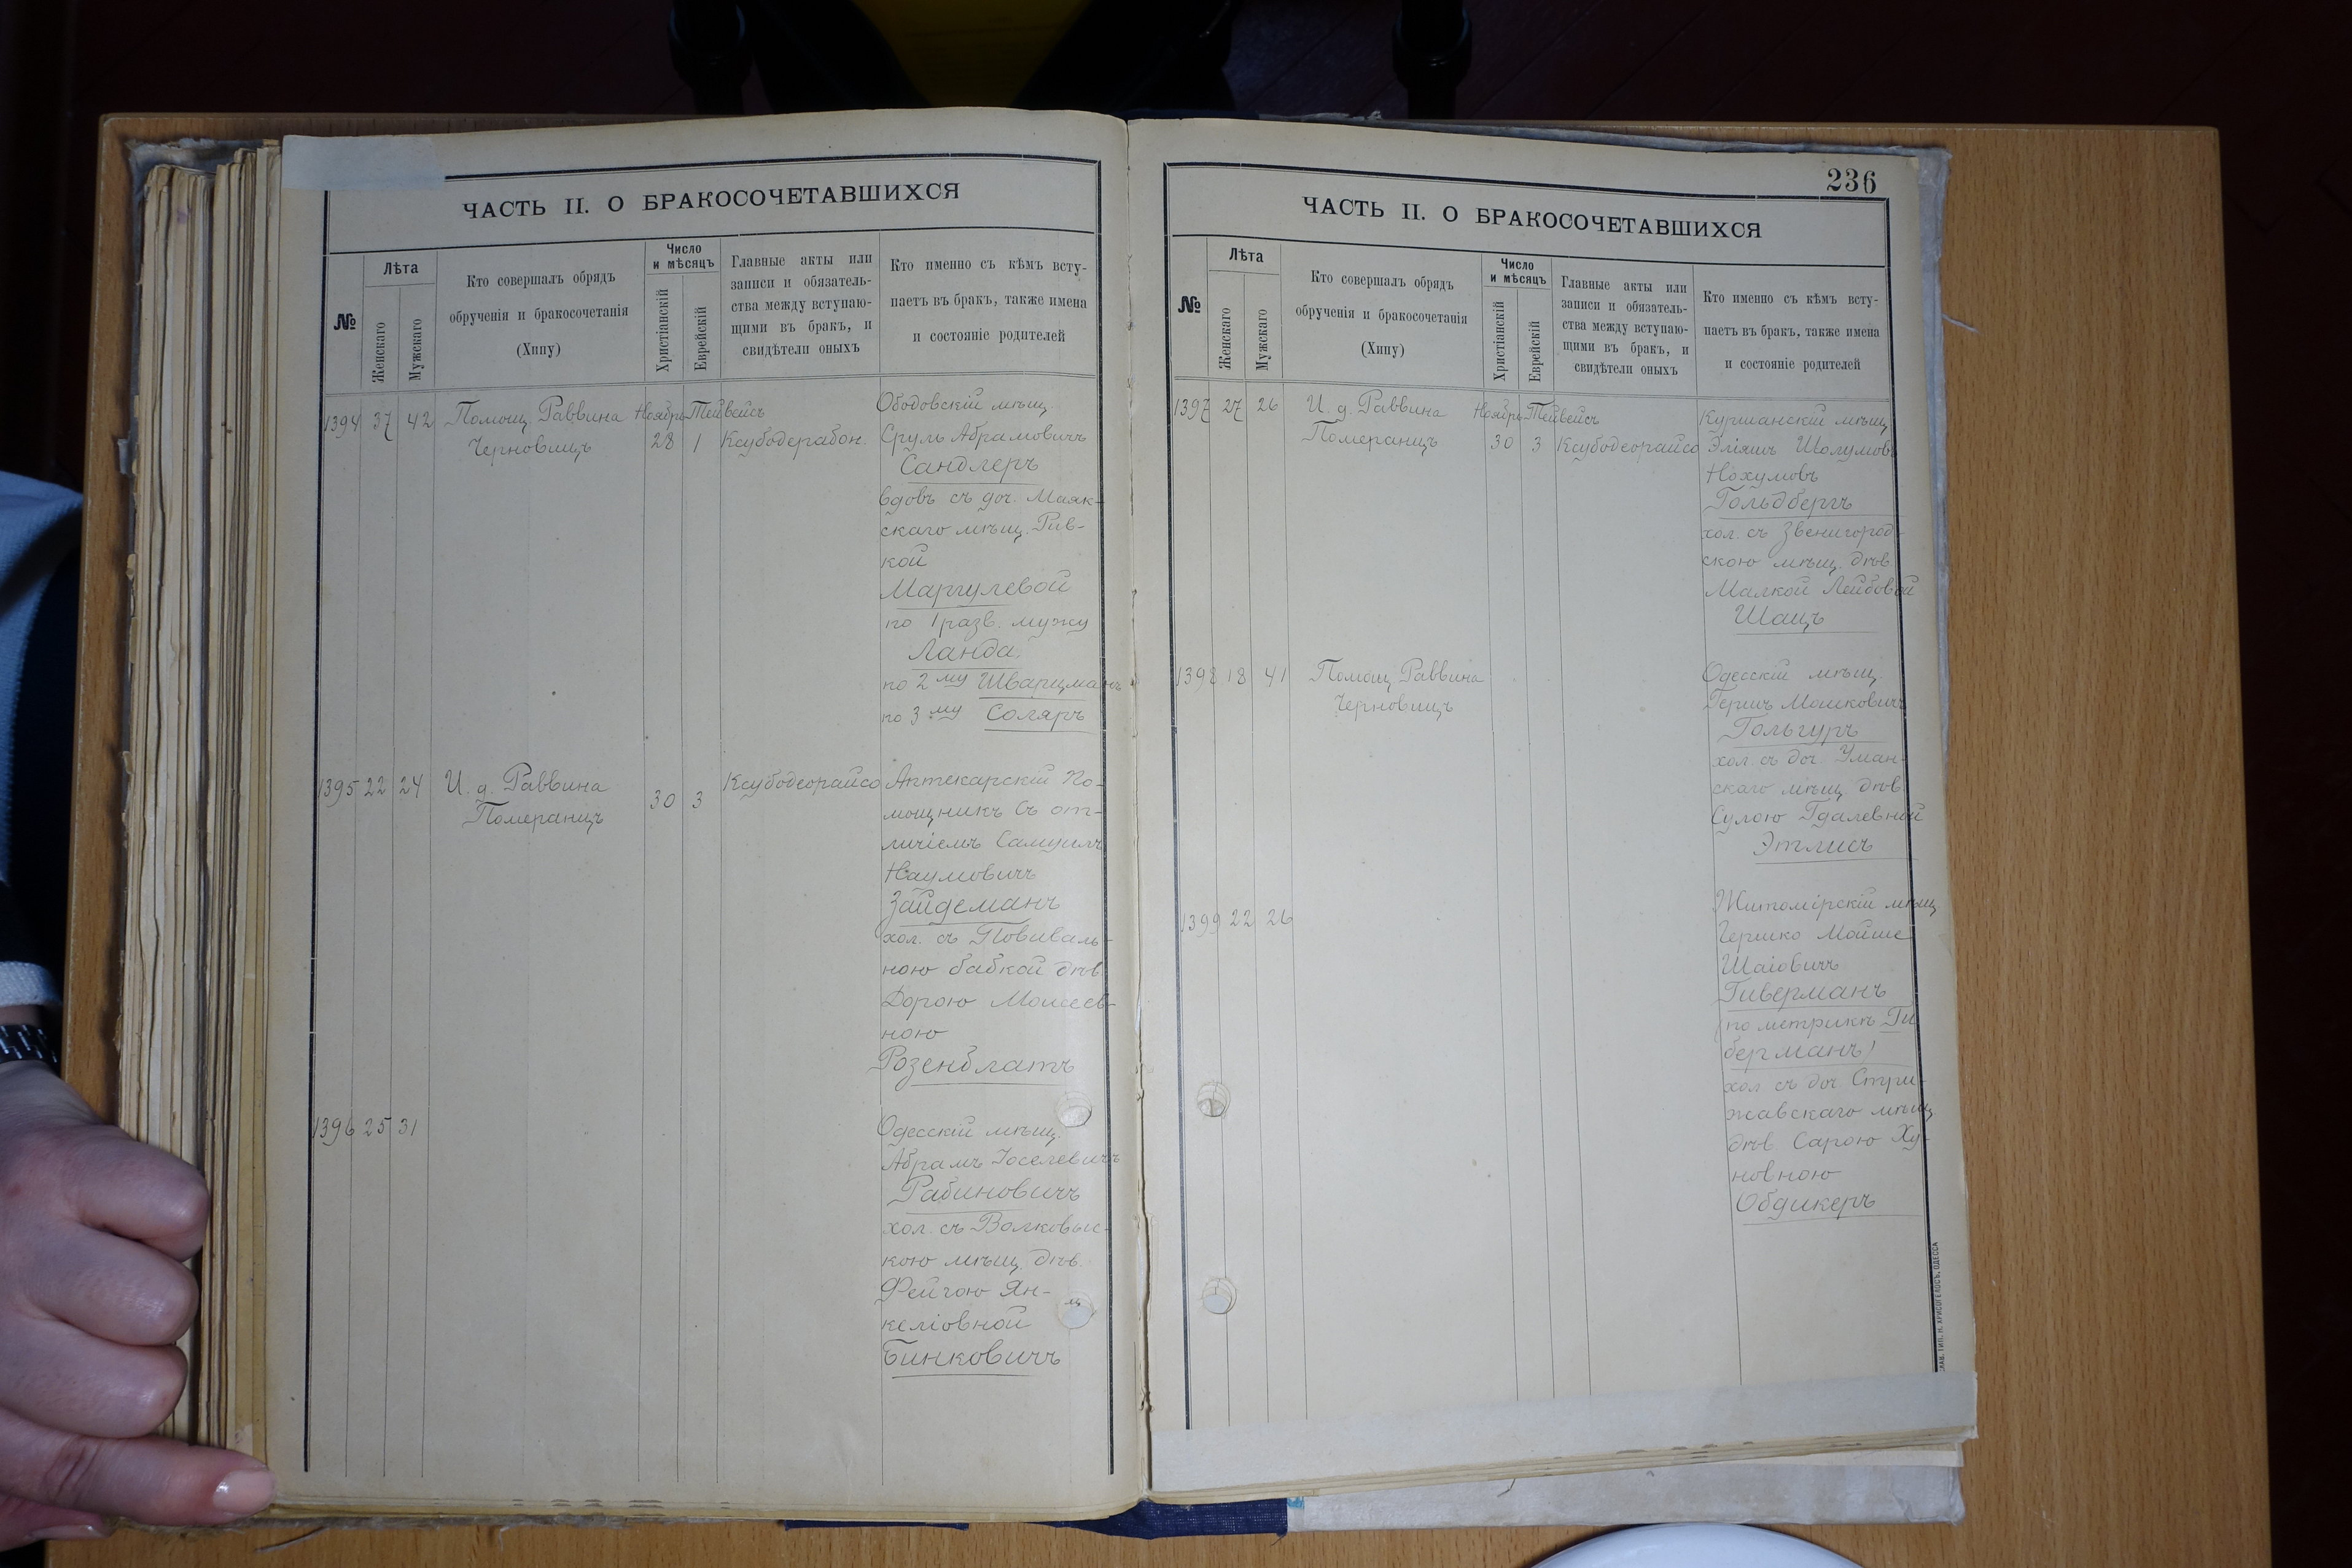 ЧАСТЬ II. О БРАКОСОЧЕТАВШИХСЯ
№
Лѣта
Женскаго
Мужскаго
Кто совершалъ обрядъ
обрученія и бракосочетанія
(Хипу)
Число
и мѣсяцъ
Христіанскій
Еврейскій
Главные акты или
записи и обязатель-
ства между вступаю-
щими въ бракъ, и
свидѣтели оныхъ
Кто именно съ кѣмъ всту-
паетъ въ бракъ, также имена
и состояніе родителей
1394 37 42
Помощ. Раввина
Черновицъ
Ноябрь
28 1
Ксубодерабон.
Ободовскій мѣщ.
Сруль Абрамовичъ
Сандлеръ
вдовъ съ доч. Маяк-
скаго мѣщ. Рив-
кой
Маргулевой
по 1 разв. мужу
Ланда.
по 2му Шварцманъ
по 3му Соляръ
1395 22 24
И. д. Раввина
Померанцъ
30 3
Ксубодеорайсо
Аптекарскій По-
мощникъ съ от-
личіемъ Самуилъ
Наумовичъ
Зайдеманъ
хол. съ Повиваль-
ною бабкой дѣв.
Дорою Моисеев-
ною
Розенблатъ
1396 25 31
Одесскій мѣщ.
Абрамъ Іоселевичъ
Рабиновичъ
хол. съ Волковыс-
кою мѣщ. дѣв.
Фейгою Ян-
келіовной
Бинковичъ
236
ЧАСТЬ II. О БРАКОСОЧЕТАВШИХСЯ
№
Лѣта
Женскаго
Мужскаго
Кто совершалъ обрядъ
обрученія и бракосочетанія
(Хипу)
Число
и мѣсяцъ
Христіанскій
Еврейскій
Главные акты или
записи и обязатель-
ства между вступаю-
щими въ бракъ, и
свидѣтели оныхъ
Кто именно съ кѣмъ всту-
паетъ въ бракъ, также имена
и состояніе родителей
1397 27 26
И. д. Раввина
Померанцъ
Ноябрь
30 3
Ксубодеорайсо
мѣщ.
Эліяшъ Шолумовъ
Нохумовъ
Гольдбергъ
хол. съ Звенигород-
скою мѣщ. дѣв.
Малкой Лейбовой
Шацъ
1398 18 41
Помощ. Раввина
Черновицъ
Одесскій мѣщ.
Гершъ Мошковичъ
Гольгуръ
хол. съ доч. Уман-
скаго мѣщ. дѣв.
Сулою Гдалевной
Этлисъ
1399 22 26
Житомірскій мѣщ.
Гершко Мойше
Шаіовичъ
Гиверманъ
(по метрикѣ Ги
берманъ)
хол. съ доч. Стри-
жавскаго мѣщ.
дѣв. Сарою Ху-
новною
Обдикеръ